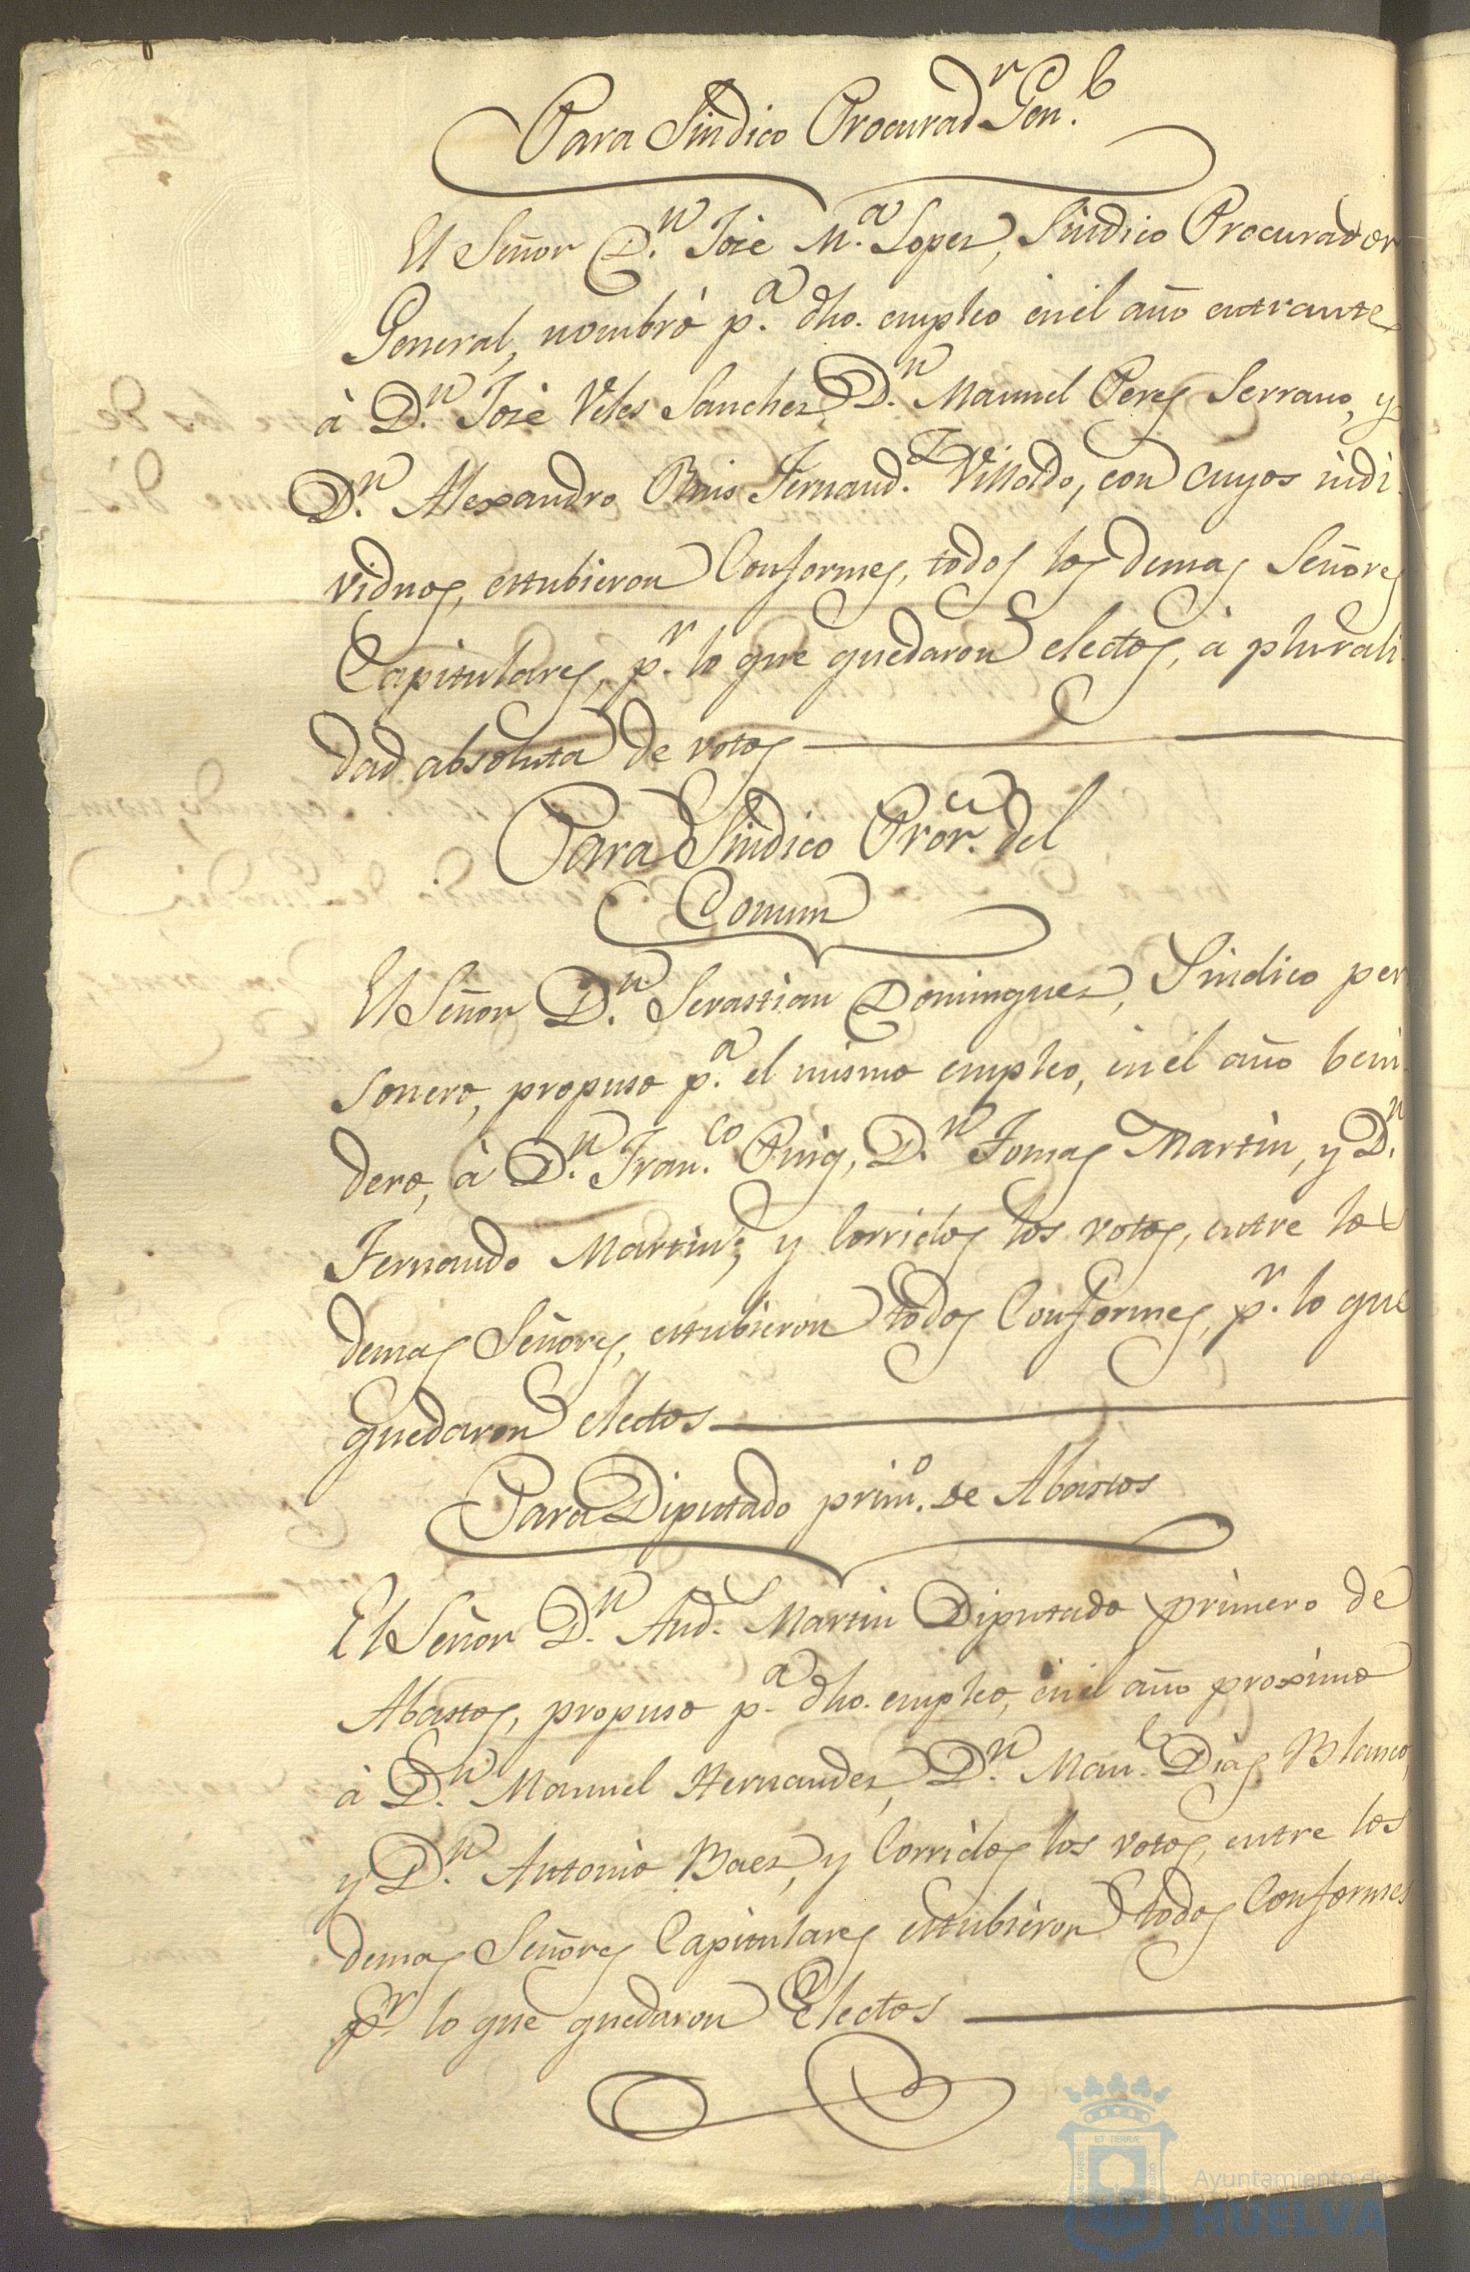 Para Sindico Procurad.r Gen.l
El Señor D.n José M.a Lopez, Sindico Procurador
General, nombró p.a dho. empleo en el año entrante
à D.n José Veles Sanchez, D.n Manuel Peres Serrano, y
D.n Alexandro Ruis Fernand.z Villoldo, con cuyos indi-
viduos, estubieron Conformes, todos los demas Señores
Capitulares, p.r lo que quedaron electos, à plurali-
dad absoluta de votos
Para Sindico Pror. del
Comun
El Señor D.n Sevastian Dominguez, Sindico per
sonero, propuso p.a el mismo empleo, en el año beni
dero, à D.n Fran.co Puig, D.n Tomas Martin, y D.n
Fernando Martin; y Corridos los votos, entre los
demas Señores, estubieron todos Conformes, p.r lo que
quedaron electos
Para Diputado prim.o de Abastos
El Señor D.n And.s Martin Diputado primero de
Abastos, propuso p.a dho. empleo, en el año proximo
à D.n Manuel Hernandez, D.n Man.l Dias Blanco,
y D.n Antonio Baez, y Corridos los votos, entre los
demas Señores Capitulares estubieron todos Conformes
p.r lo que quedaron Electos
Ayuntamiento de
HUELVA